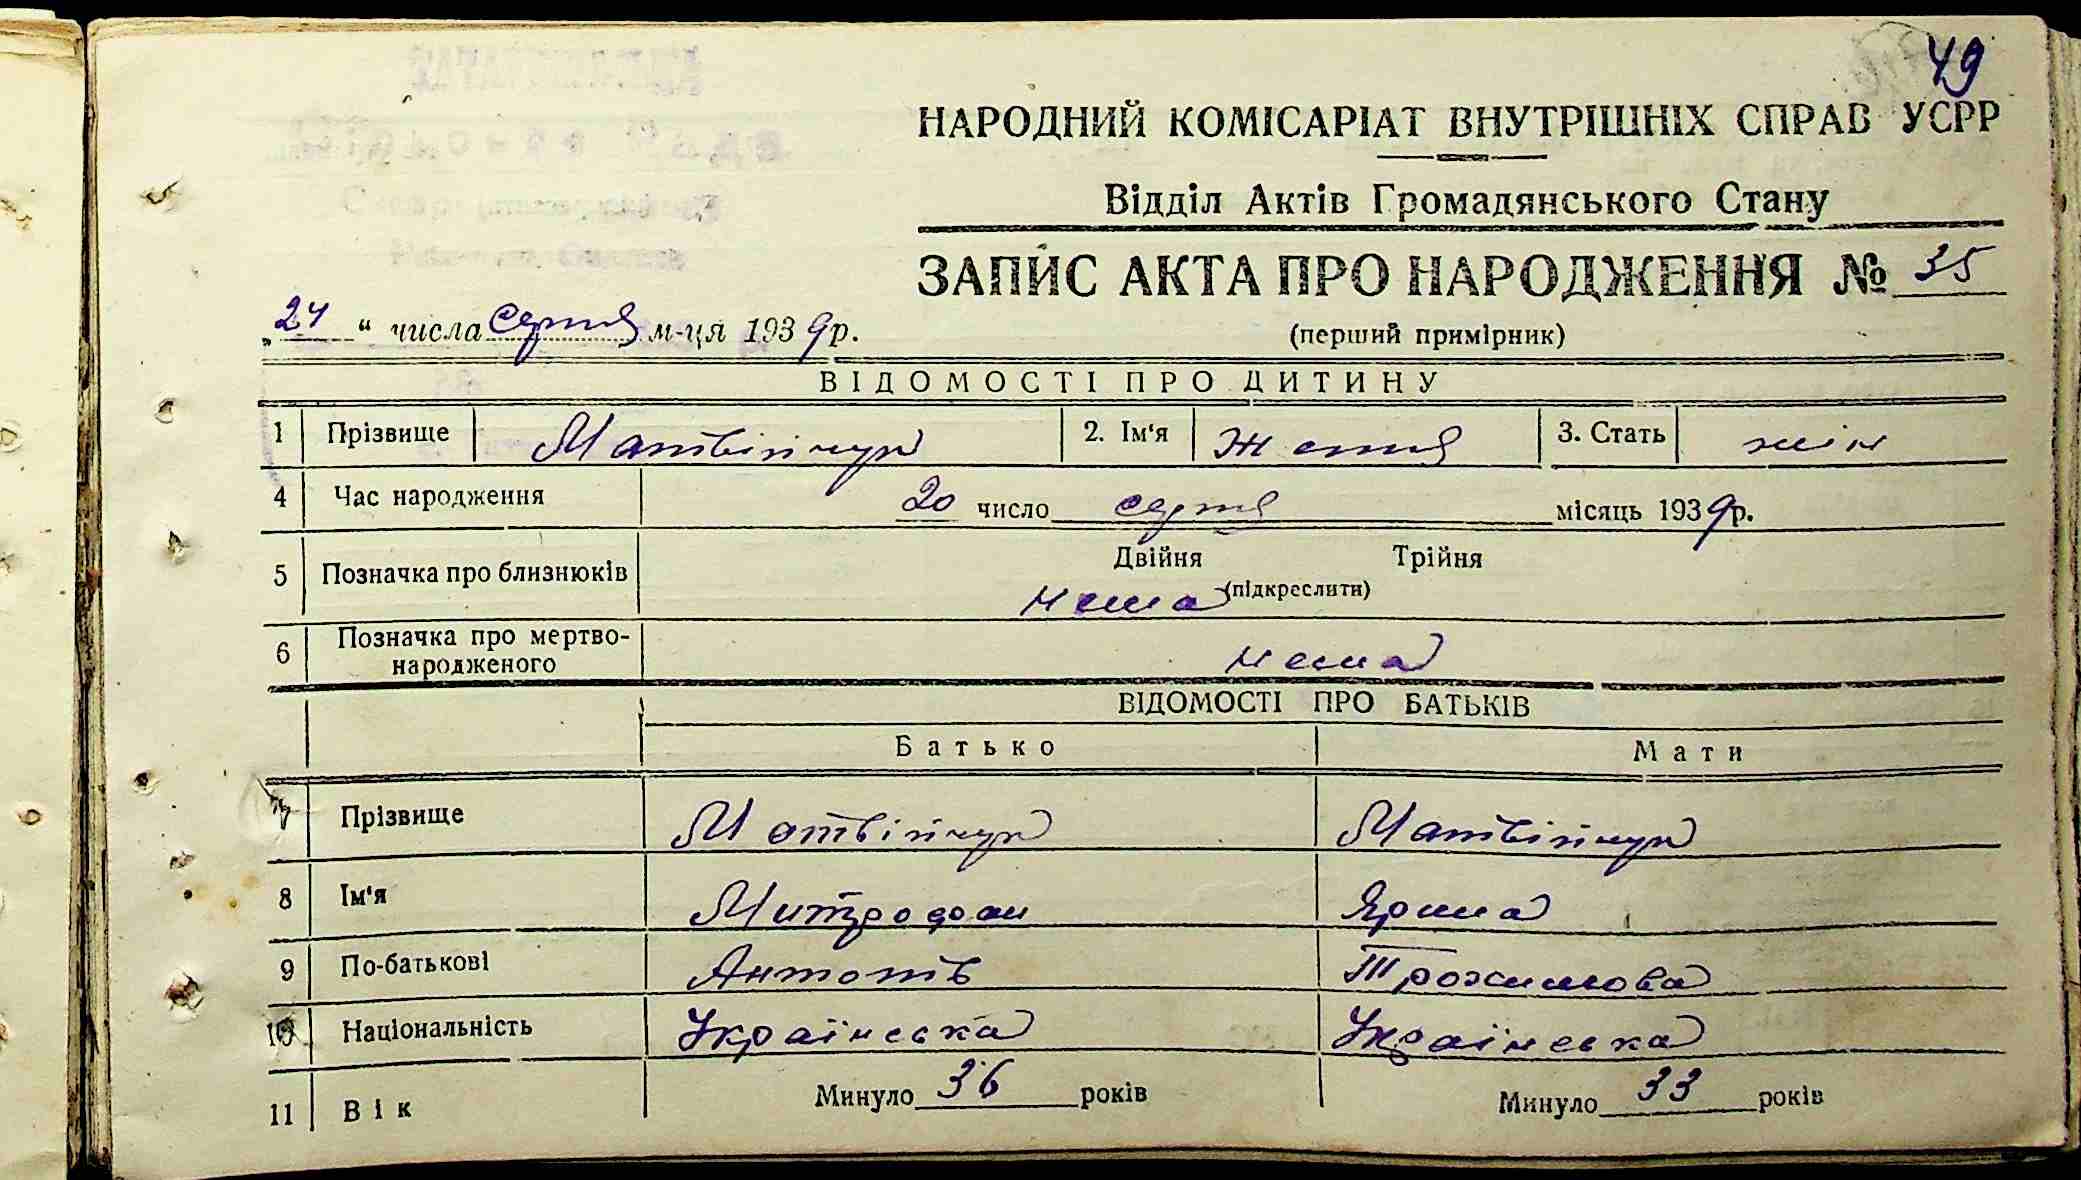 49
НАРОДНИЙ КОМІСАРІАТ ВНУТРІШНІХ СПРАВ УСРР
Відділ Актів Громадянського Стану
ЗАПИС АКТА ПРО НАРОДЖЕННЯ № 35
„24“ числа серпня м-ця 1939р.
(перший примірник)
ВІДОМОСТІ ПРО ДИТИНУ
1 Прізвище Матвійчук 2. Ім'я Женя 3. Стать жін
4 Час народження 20 число серпня місяць 1939р.
5 Позначка про близнюків Двійня Трійня
нема (підкреслити)
6 Позначка про мертво-
народженого нема
ВІДОМОСТІ ПРО БАТЬКІВ
Батько Мати
7 Прізвище Матвійчук Матвійчук
8 Ім'я Митрофан Ярина
9 По-батькові Антонів Трохимова
10 Національність Українська Українська
11 Вік Минуло 36 років Минуло 33 років